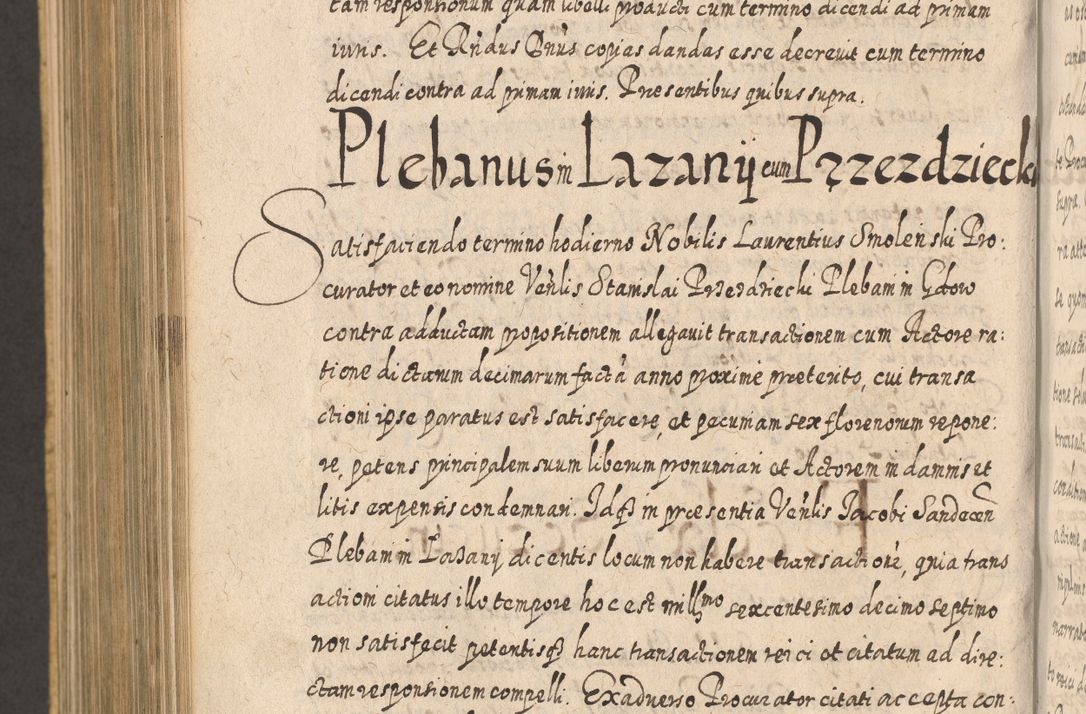 tam responsionum quam libelli producti cum termino dicendi ad primam
iuris. Et Rńdus Dnús copias dandas esse decreuit cum termino
dicendi contra ad primam iuris. Presentibus quibus supra.
Plebanus in Lazanÿ cum Przezdzieck
Satisfaciendo termino hodierno Nobilis Laurentius Smolenski Pro:
curator et eo nomine Veńlis Stanislai Przezdziecki Plebani in Gdow
contra adductam propositionem allegauit transactionem cum Actore ra:
tione dictarum decimarum factá anno proxime præterito, cui transa
ctioni ipse paratus est satisfacere, et pecuniam sex florenorum repone:
re, petens principalem suum liberum pronunciari et Actorem in damnis et
litis expensis condemnari. Idq3 in præsentia Veńlis Jacobi Sandecen
Plebani in Lazanÿ dicentis locum non habere transactioné, quia trans
actioni citatus illo tempore hoc est millmo sexcentesimo decimo septimo
non satisfecit petentisq3 hanc transactionem reici et citatum ad dire:
ctam responsionem compelli. Ex aduerso Procurator citati accepta con: